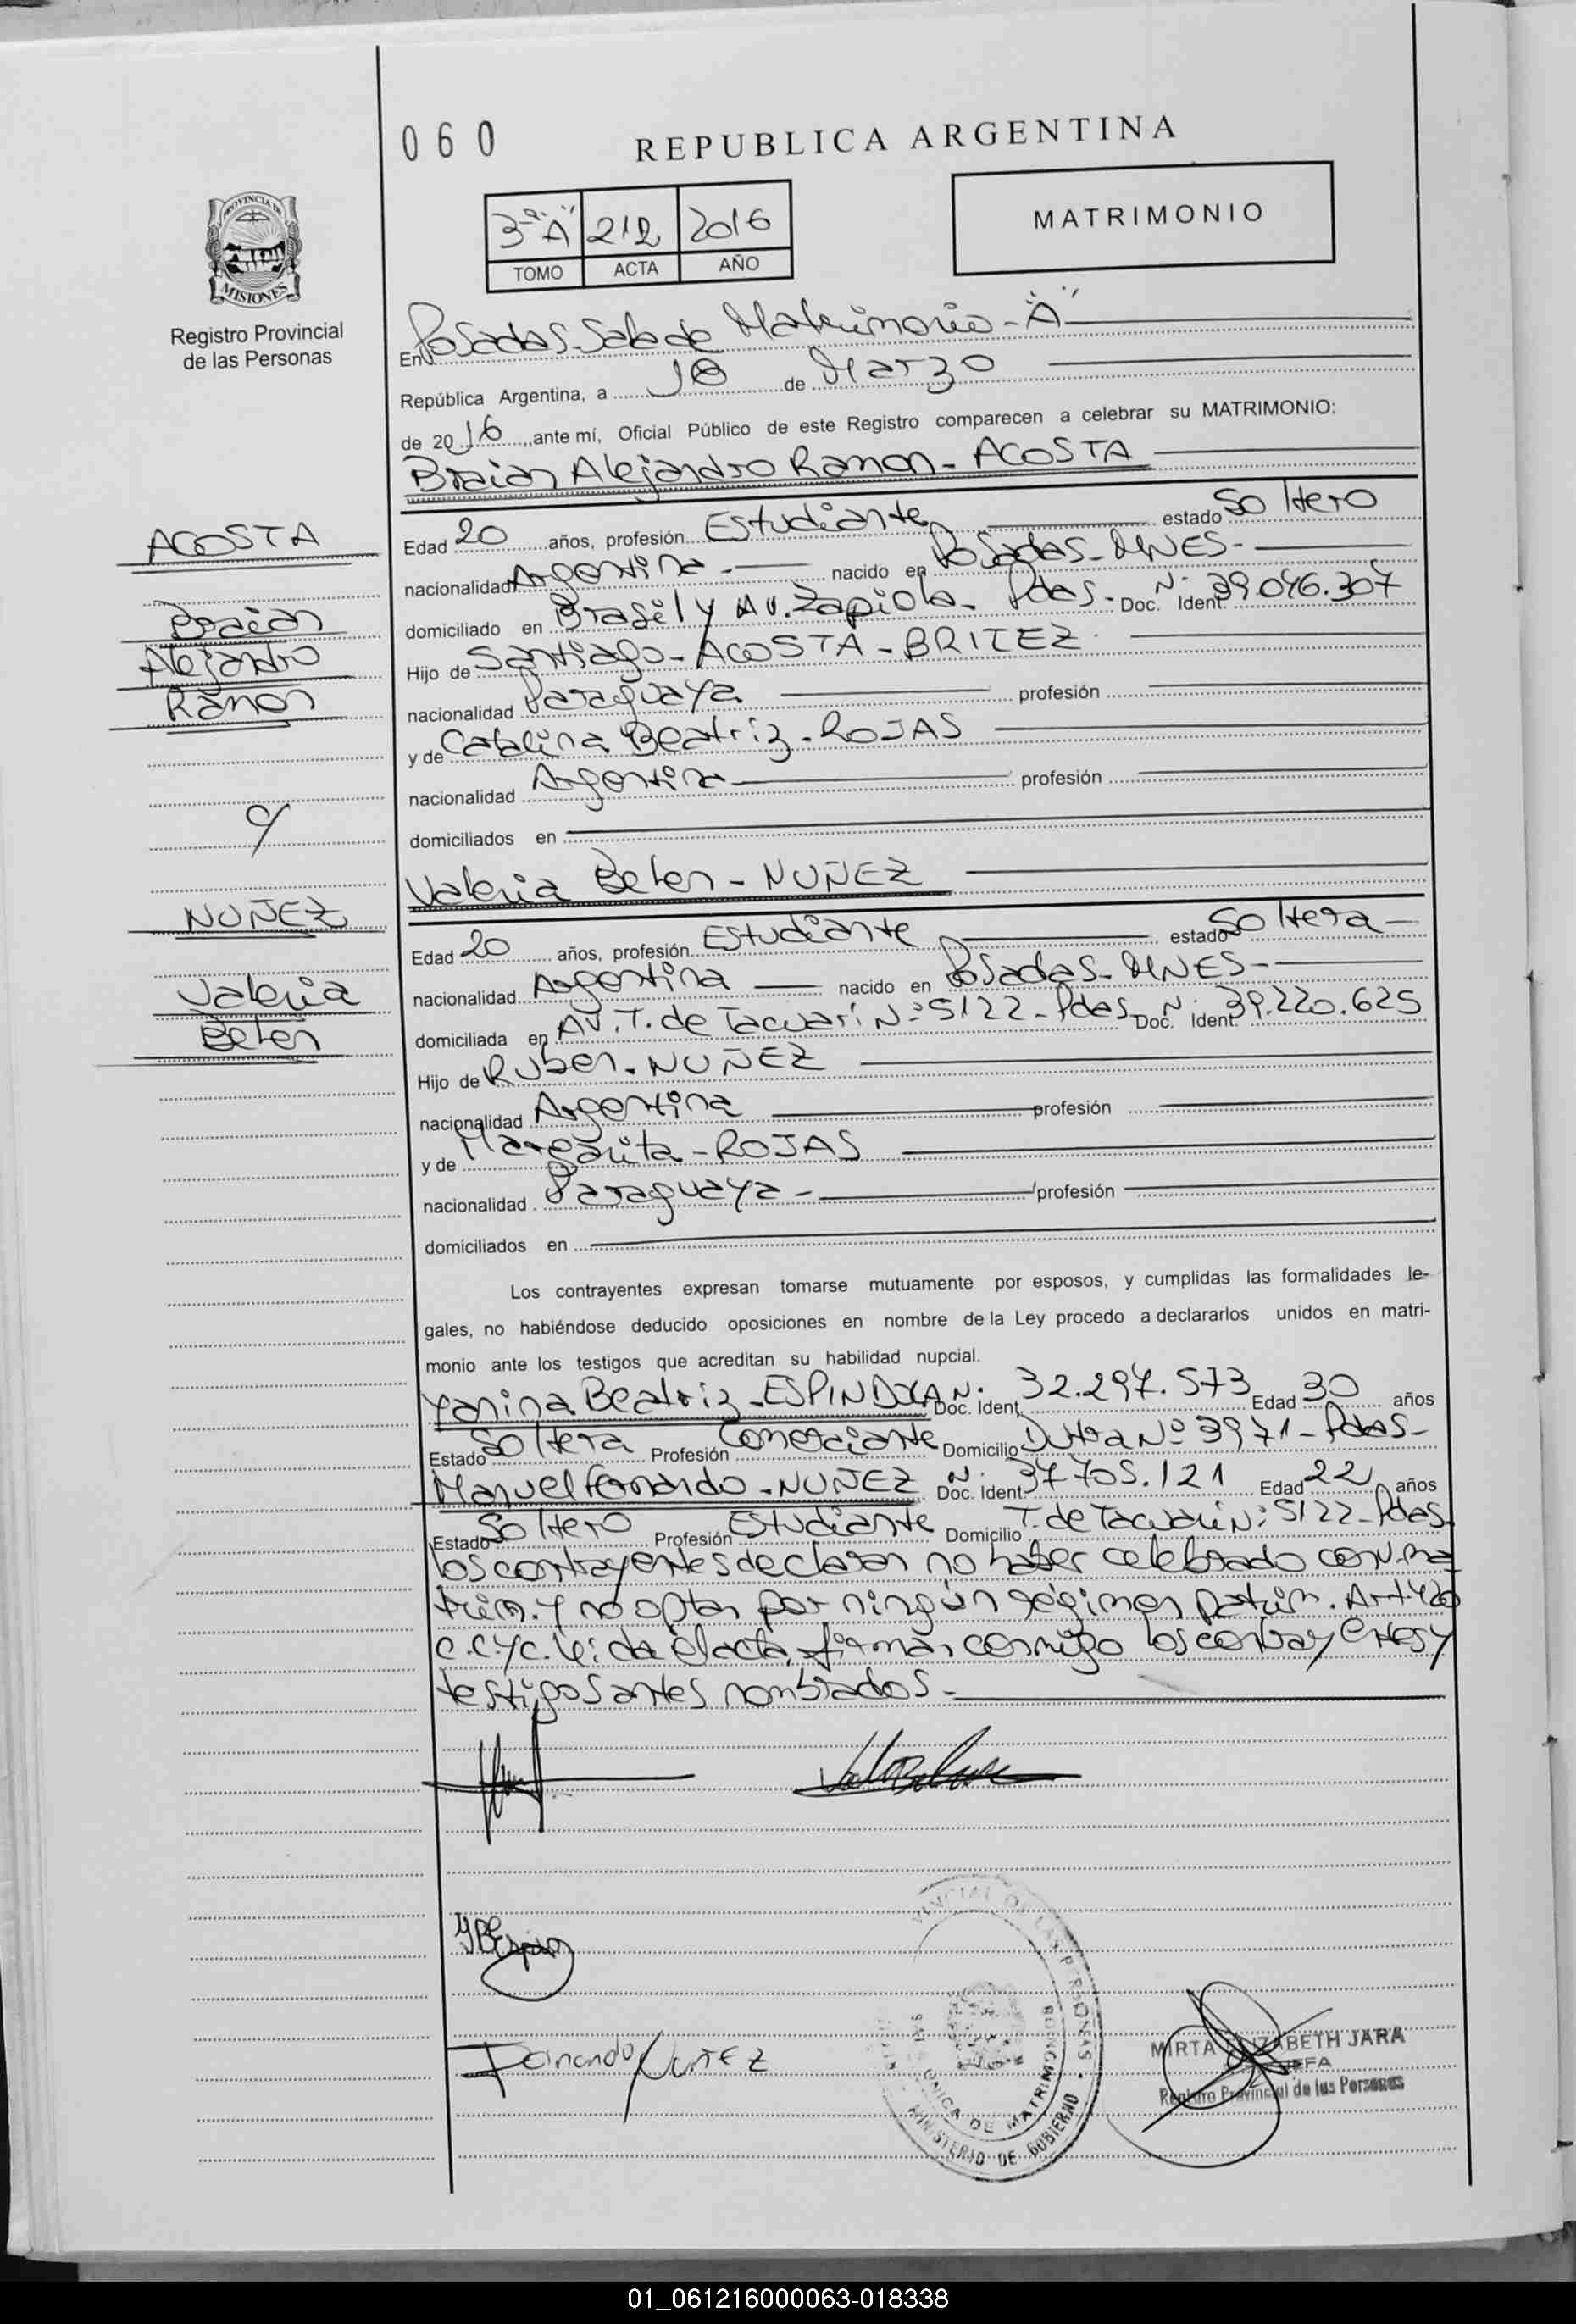 060
REPUBLICA ARGENTINA
PROVINCIA DE
MISIONES
Registro Provincial
de las Personas
3º "A" 212 2016
TOMO ACTA AÑO
MATRIMONIO
En Posadas Sala de Matrimonio - "A"
República Argentina, a 18 de Marzo
de 2016, ante mí, Oficial Público de este Registro comparecen a celebrar su MATRIMONIO:
Braian Alejandro Ramon - ACOSTA
ACOSTA
Braian
Alejandro
Ramon
c/
NUÑEZ
Valeria
Belen
Edad 20 años, profesión Estudiante estado Soltero
nacionalidad Argentina - nacido en Posadas - MNES -
domiciliado en Brasil y Av. Zapiola - Pdas - Doc. Ident. Nº 39.046.307
Hijo de Santiago - ACOSTA - BRITEZ
nacionalidad Paraguaya profesión
y de Catalina Beatriz - ROJAS
nacionalidad Argentina profesión
domiciliados en
Valeria Belen - NUÑEZ
Edad 20 años, profesión Estudiante estado Soltera -
nacionalidad Argentina nacido en Posadas - MNES -
domiciliada en AV. T. de Tacuarí Nº 5122 - Pdas Doc. Ident. Nº 39.220.625
Hijo de Ruben - NUÑEZ
nacionalidad Argentina profesión
y de Margarita - ROJAS
nacionalidad Paraguaya - profesión
domiciliados en
Los contrayentes expresan tomarse mutuamente por esposos, y cumplidas las formalidades le-
gales, no habiéndose deducido oposiciones en nombre de la Ley procedo a declararlos unidos en matri-
monio ante los testigos que acreditan su habilidad nupcial.
Yanina Beatriz - ESPINDOLA Doc. Ident. Nº 32.297.573 Edad 30 años
Estado Soltera Profesión Comerciante Domicilio Dutra Nº 3971 - Pdas -
Manuel Fernando - NUÑEZ Doc. Ident. Nº 37705.121 Edad 22 años
Estado Soltero Profesión Estudiante Domicilio T. de Tacuarí Nº 5122 - Pdas.
los contrayentes declaran no haber celebrado conv. ma
trim. y no optan por ningún régimen patrim. Art. 420
C.C. y C. Leida el acta, firman conmigo los contrayentes y
testigos antes nombrados -
Fernando Nuñez
VINCIAL DE LAS PERSONAS
UNICA DE MATRIMONIOS
MINISTERIO DE GOBIERNO
MIRTA ELIZABETH JARA
JEFA
Registro Provincial de las Personas
01_061216000063-018338